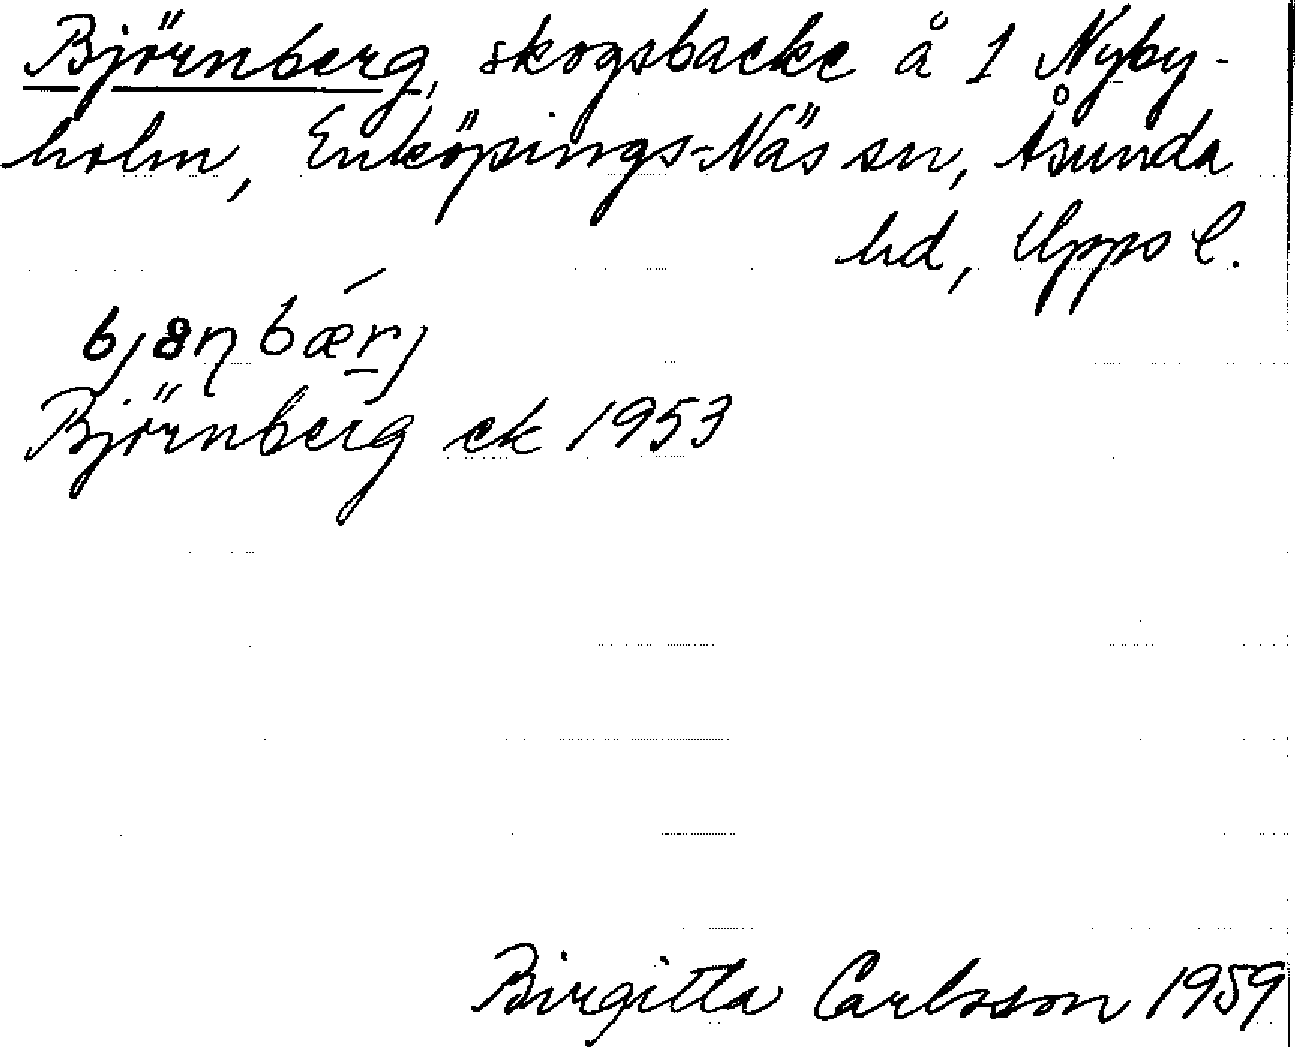 Björnberg, skogsbacke å 1 Nyby-
holm, Enköpings-Näs sn, Åsunda
hd, Upps l.
bjɵɳbærj
Björnberg ek 1953
Birgitta Carlsson 1959